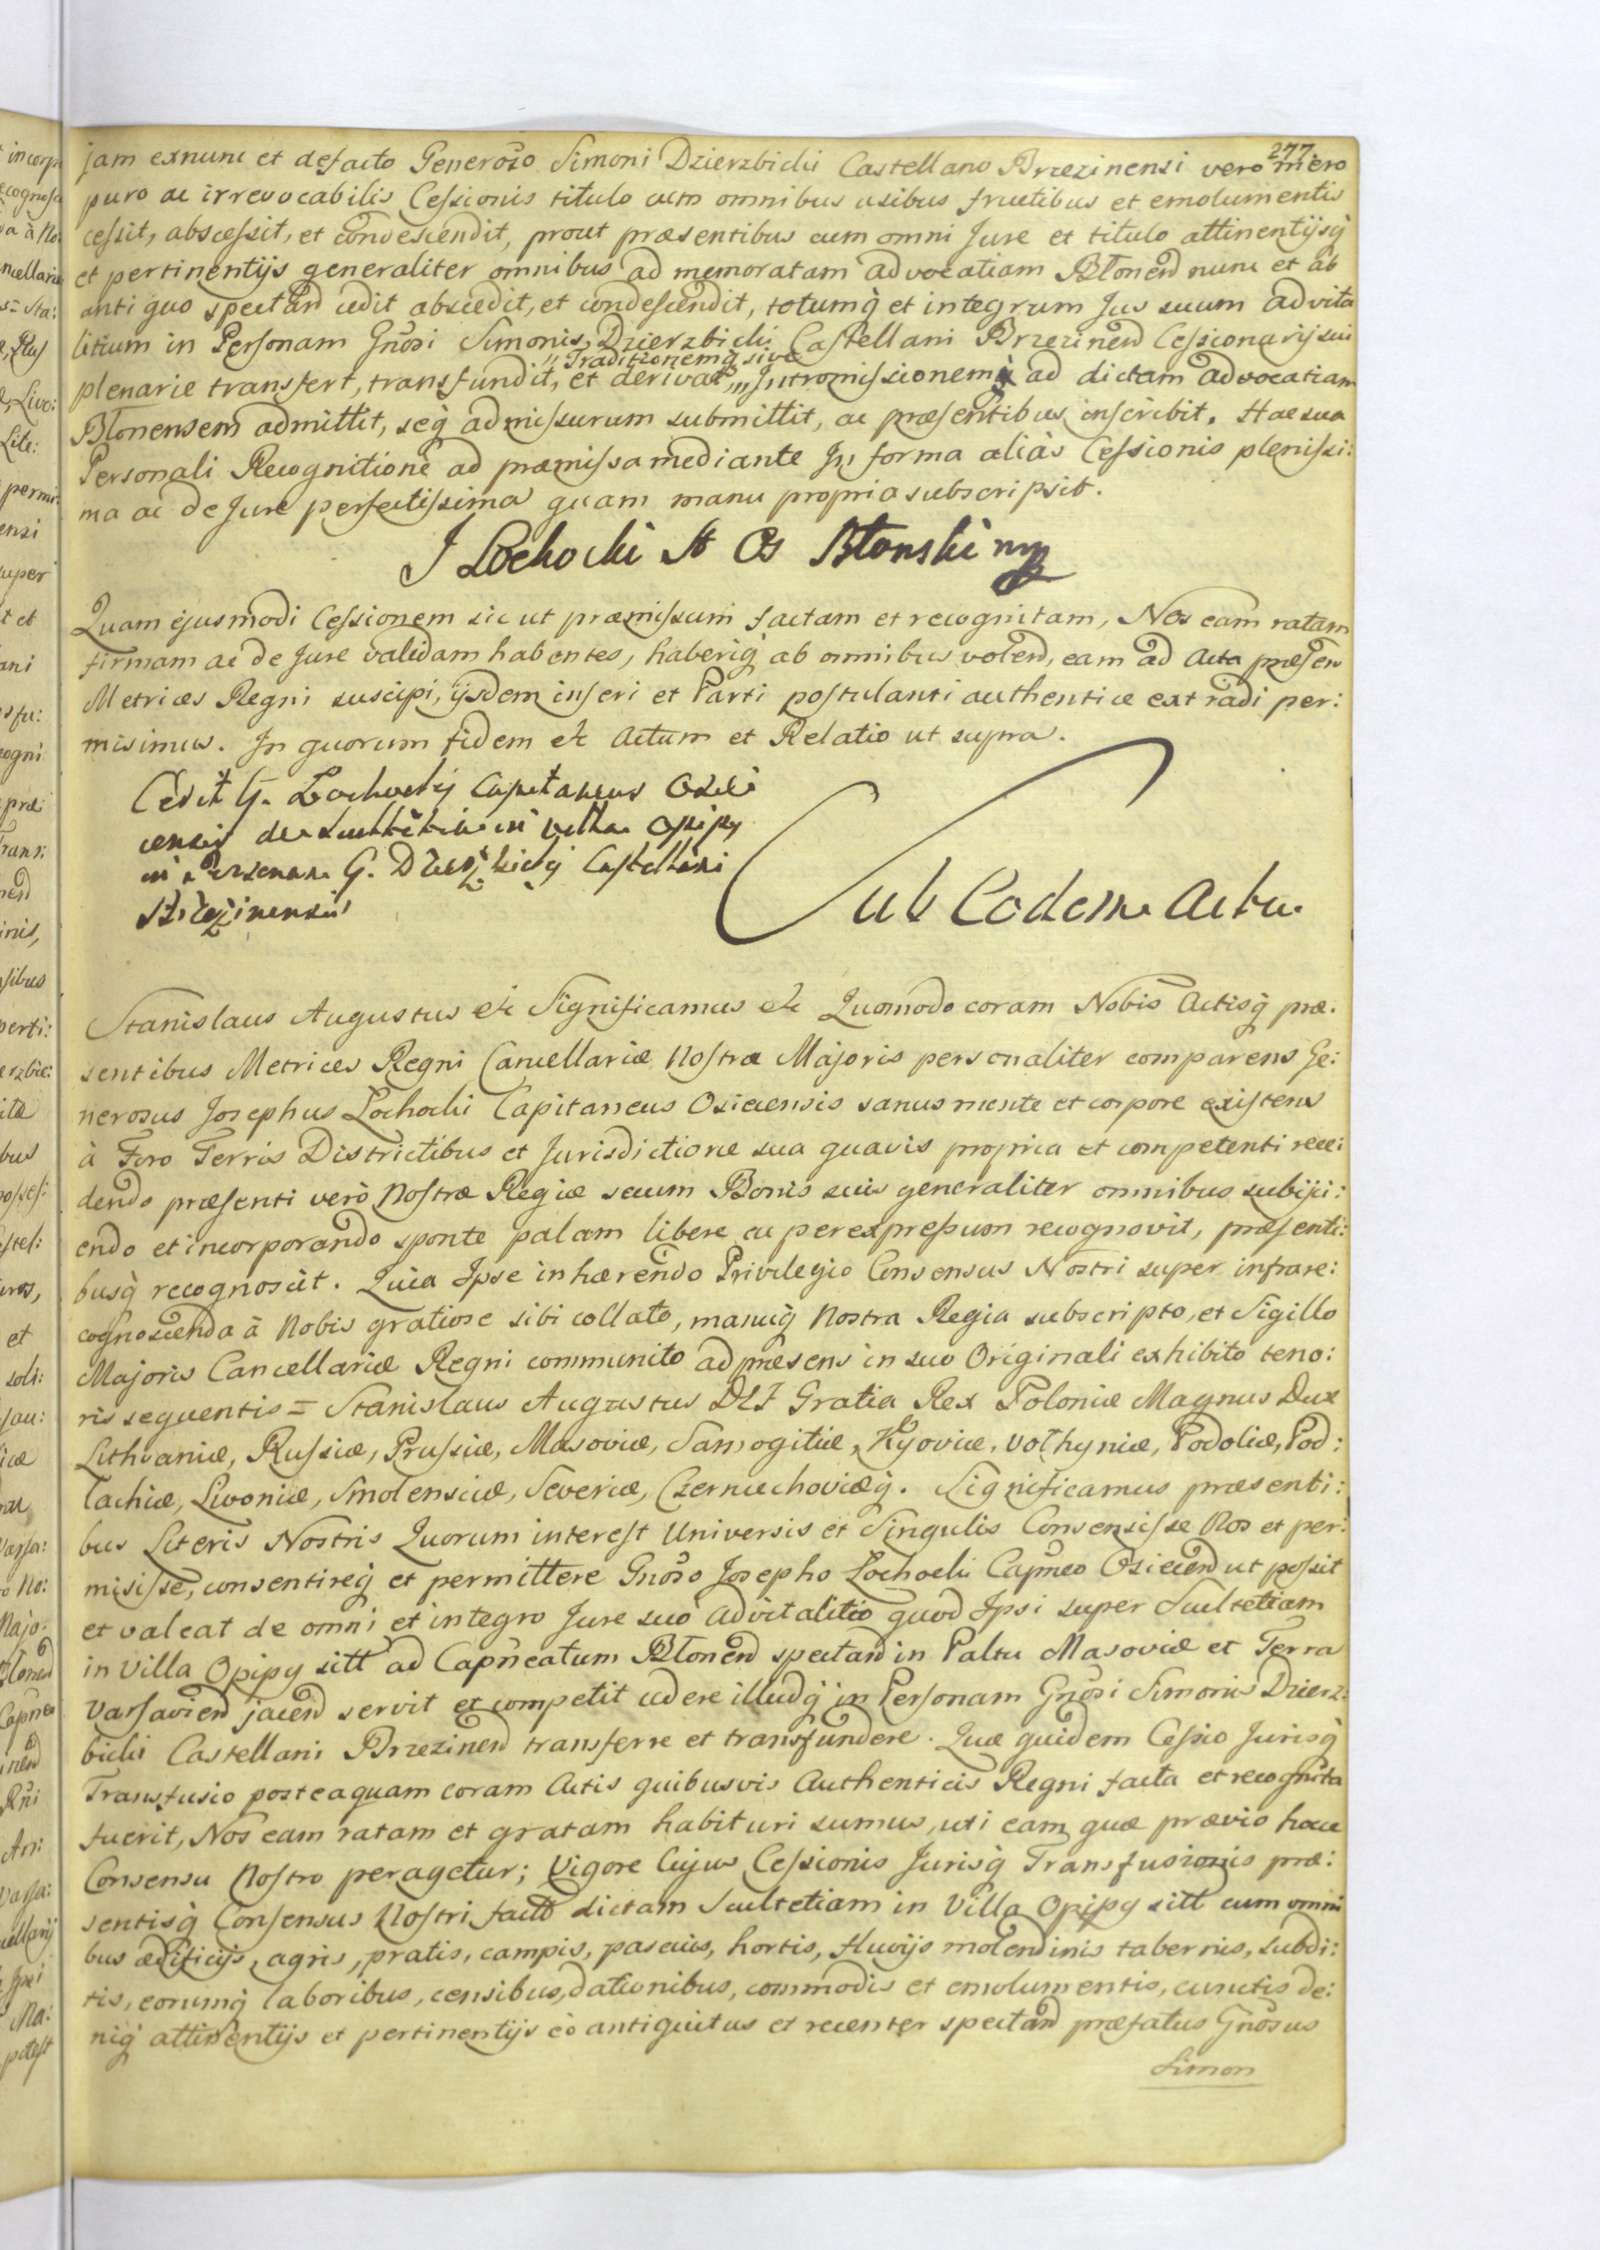 277.
jam exnunc et defacto Generoso Simoni Dzierzbicki Castellano Brzezinensi vero mero
puro ac irrevocabilis Cessionis titulo cum omnibus usibus fructibus et emolumentis
cessit, abscessit, et condescendit, prout præsentibus cum omni Jure et titulo attinentijsq̀
et pertinentijs generaliter omnibus ad memoratam advocatiam Błonen̄ nunc et ab
antiquo spectan̄ cedit abscedit, et condescendit, totumq̀ et integrum Jus suum advita
litium in Personam Gn̄osi Simonis Dzierzbicki Castellani Brzezinen̄ Cessionarij sui
plenarie transfert, transfundit, et derivat, „Traditionemq̀ sive„ Intromissionemq̀ ad dictam advocatiam
Błonensem admittit, seq̀ admissurum submittit, ac præsentibus inscribit. Hac sua
Personali Recognitione ad præmissa mediante In forma aliàs Cessionis plenissi:
ma ac de Jure perfectissima quam manu propria subscripsit.
J Łochocki St Os Błonski mp
Quam ejusmodi Cessionem sic ut præmissum factam et recognitam, Nos eam ratam
firmam ac de Jure validam habentes, haberiq̀ ab omnibus volen̄, eam ad Acta præsen
Metrices Regni suscipi, ijsdem inseri et Parti postulanti authentice extradi per:
misimus. In quorum fidem etc Actum et Relatio ut supra.
Cedit G. Łochocky Capitaneus Osie
censis de Scultetia in villa Opipy
in Personam G. Dzierzbicky Castellani
Brzezinensis
Sub Eodem Actu.
Stanislaus Augustus etc Significamus etc Quomodo coram Nobis Actisq̀ præ.
sentibus Metrices Regni Cancellariæ Nostræ Majoris personaliter comparens Ge:
nerosus Josephus Łochocki Capitaneus Osiecensis sanus mente et corpore existens
à Foro Terris Districtibus et Jurisdictione sua quavis propria et competenti rece:
dendo præsenti verò Nostræ Regiæ secum Bonis suis generaliter omnibus subijci:
endo et incorporando sponte palam libere ac per expressum recognovit, præsenti:
busq̀ recognoscit. Quia Ipse inhærendo Privilegio Consensus Nostri super infrare:
cognoscenda à Nobis gratiose sibi collato, manuq̀ Nostra Regia subscripto, et Sigillo
Majoris Cancellariæ Regni communito ad præsens in suo Originali exhibito teno:
ris sequentis = Stanislaus Augustus DEI Gratia Rex Poloniæ Magnus Dux
Lithvaniæ, Russiæ, Prussiæ, Masoviæ, Samogitiæ, Kyoviæ, Volhyniæ, Podoliæ, Pod:
lachiæ, Livoniæ, Smolensciæ, Severiæ, Czerniechoviæq̀. Significamus præsenti:
bus Literis Nostris Quorum interest Universis et Singulis Consensisse Nos et per:
misisse, consentireq̀ et permittere Gn̄oso Josepho Łochocki Capn̄eo Osiecen̄ ut possit
et valeat de omni et integro Jure suo advitalitio quod Ipsi super Scultetiam
in Villa Opipy sitt ad Capn̄eatum Błonen̄ spectan̄ in Paltu Masoviæ et Terra
Varsavien̄ jacen̄ servit et competit cedere illudq̀ in Personam Gn̄osi Simonis Dzierz:
bicki Castellani Brzezinen̄ transferre et transfundere. Quæ quidem Cessio Jurisq̀
Transfusio posteaquam coram Actis quibusvis Authenticis Regni facta et recognita
fuerit, Nos eam ratam et gratam habituri sumus, uti eam quæ prævio hocce
Consensu Nostro peragetur; Vigore Cujus Cessionis Jurisq̀ Transfusionis præ:
sentisq̀ Consensus Nostri facto dictam Scultetiam in Villa Opipy sitt cum omni
bus ædificijs, agris, pratis, campis, pascuis, hortis, fluvijs molendinis tabernis, subdi:
tis, eorumq̀ laboribus, censibus, dationibus, commodis et emolumentis, cunctis de:
niq̀ attinentijs et pertinentijs eò antiquitus et recenter spectan̄ præfatus Gn̄osus
Simon